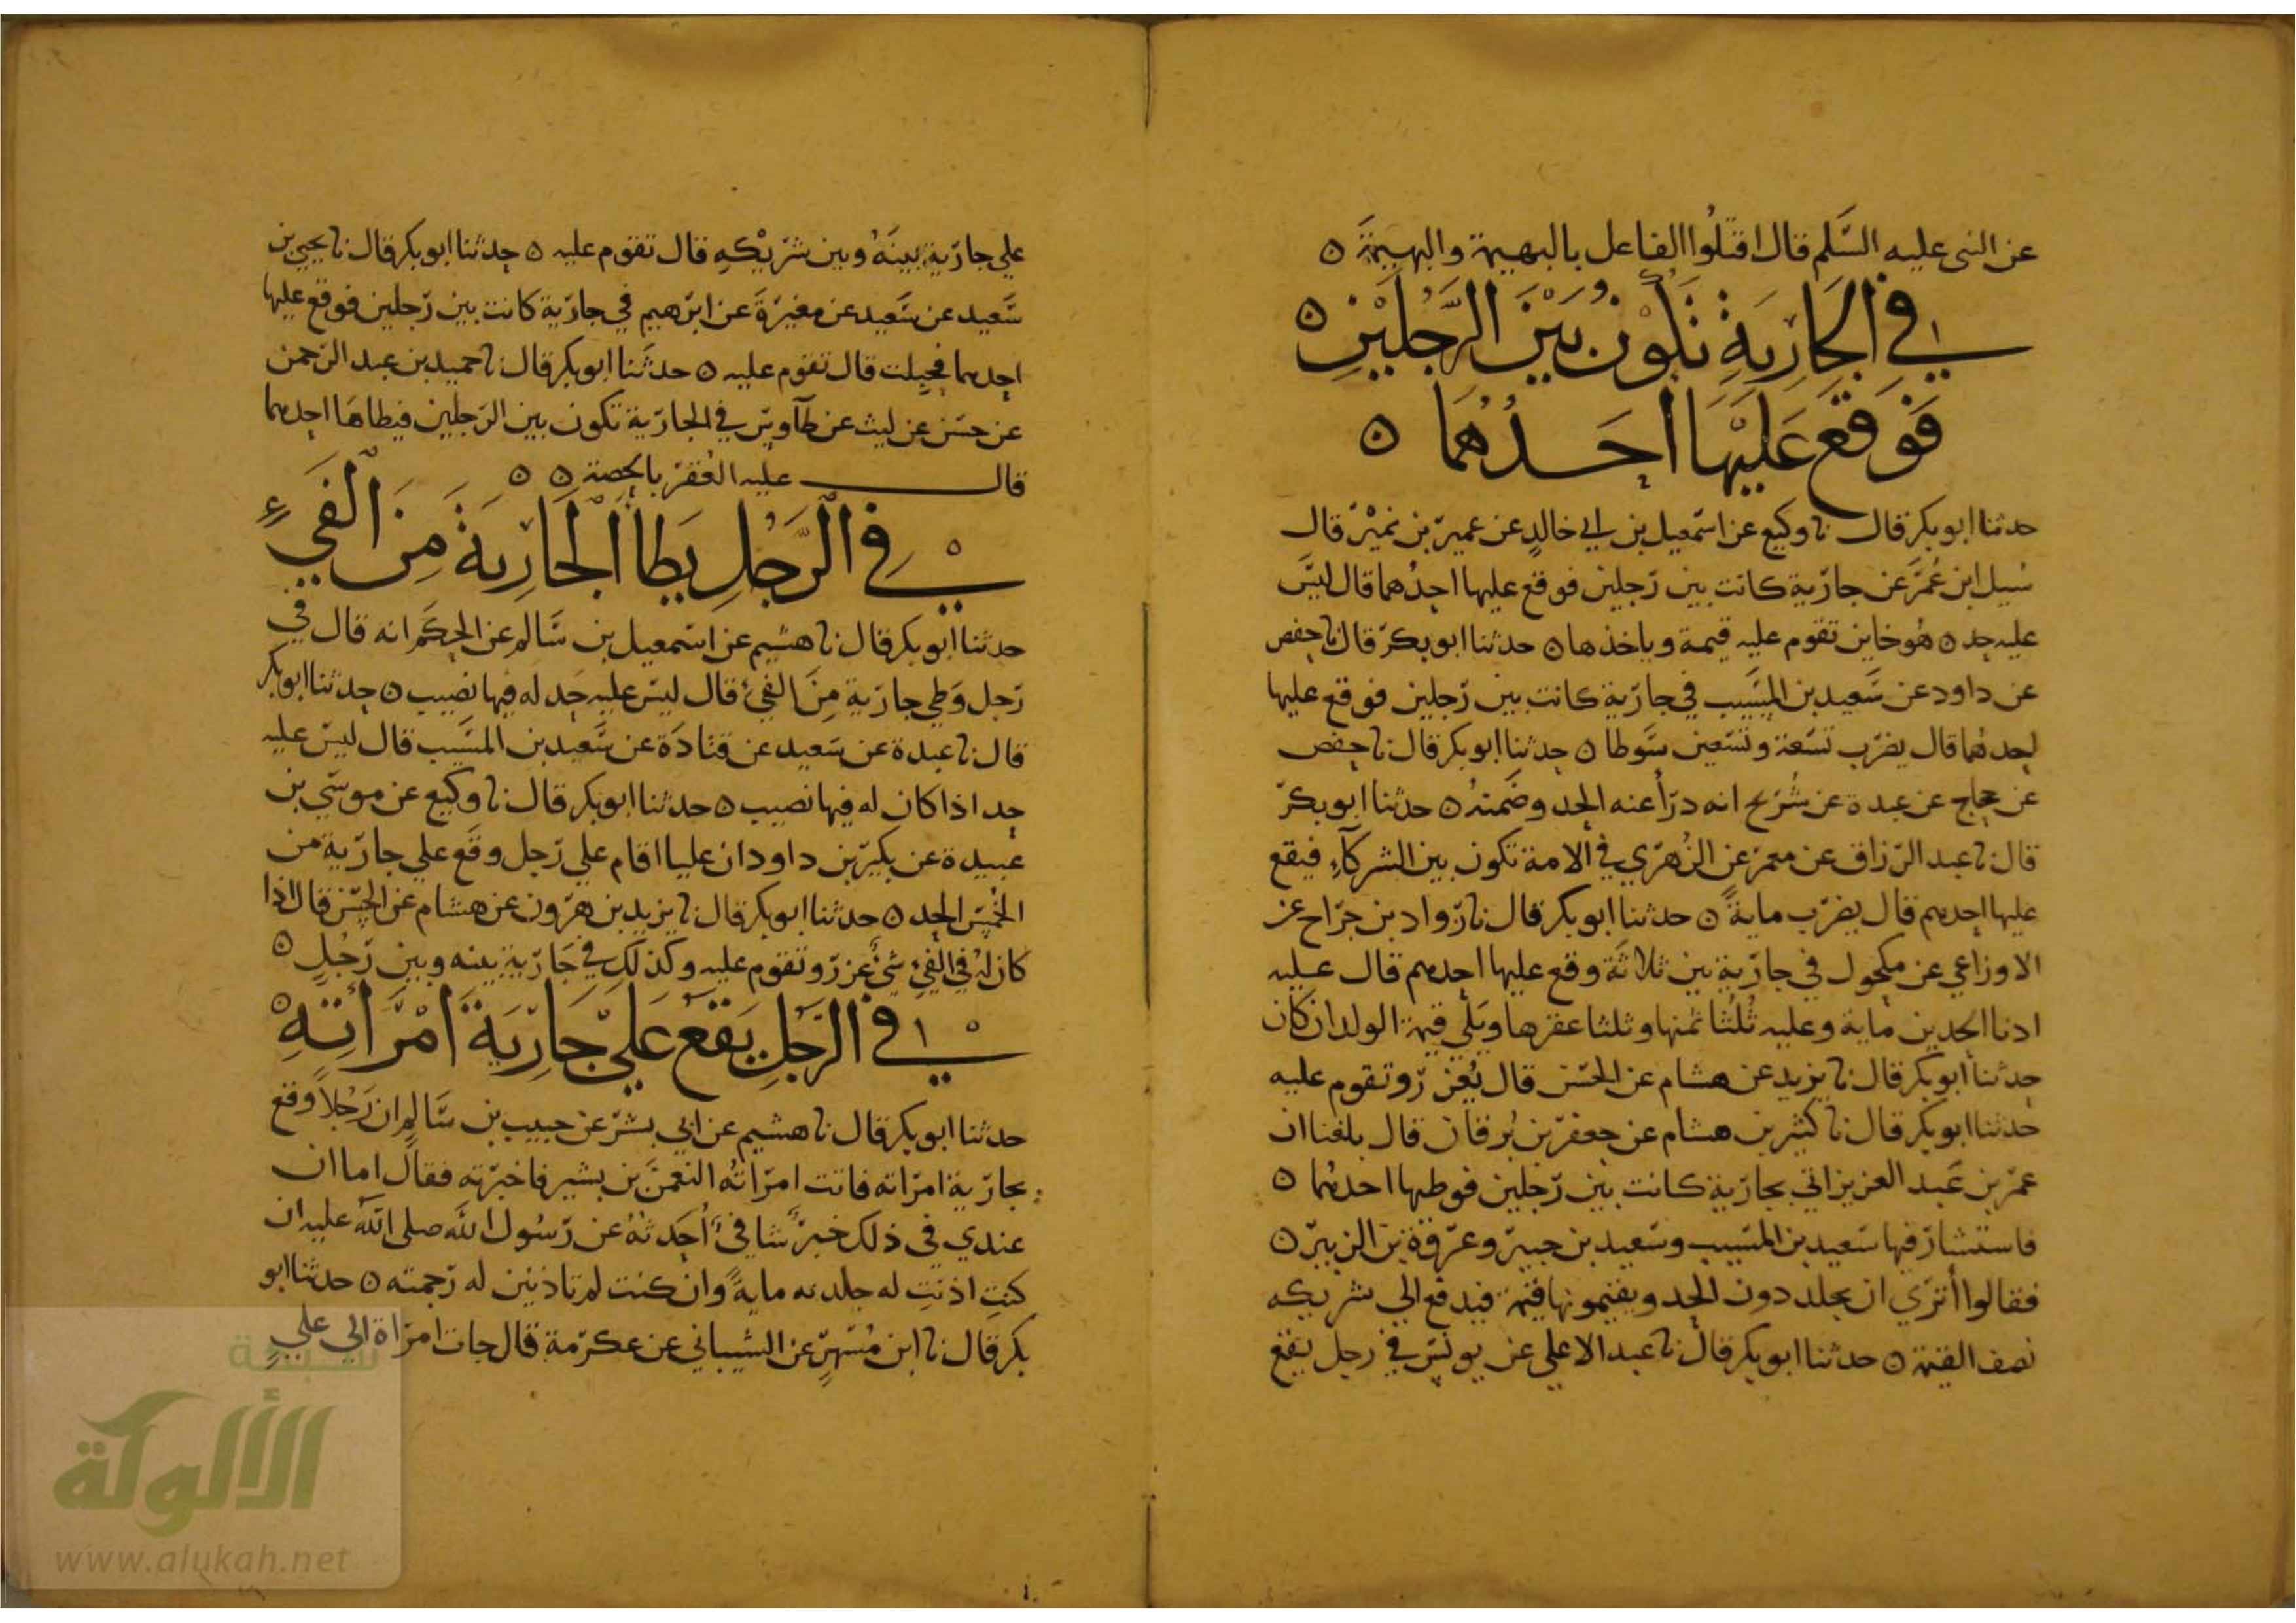 عن النبى عليه السَّلم قال اقتلُوا الفاعل بالبهيمة والبهيمَة ٥
في الجَارِيَةِ تَكُونُ بَيْنَ الرَّجُلَيْنِ ٥
فَوَقَعَ عَلَيْهَا أَحَدُهُمَا ٥
حدثنا ابو بكر قال نا وكيع عن اسمعيل بن ابي خالد عن عمير بن نمير قال
سُيل ابن عُمَر عن جارية كانت بين رجلين فوقع عليها احدُهما قال ليس
عليه حد ٥ هُو خاين تقوم عليه قيمة وياخذها ٥ حدثنا ابو بكر قال نا حفص
عن داود عن سَعيد بن المسَيب في جارية كانت بين رجلين فوقع عليها
احدهُما قال يضرب تسعة وتسَعين سَوطا ٥ حدثنا ابو بكر قال نا حفص
عن حجاج عن عبدة عن شُريح انه درَأ عنه الحد وضَمنهُ ٥ حدثنا ابو بكر
قال نا عبد الرزاق عن معمر عن الزُهري في الامة تكون بين الشركآءِ فيقع
عليها احدهم قال يضرب مايةً ٥ حدثنا ابو بكر قال نا رواد بن جراح عن
الاوزاعي عن مكحول في جارية بين ثلاثَة وقع عليها احدهم قال عليه
ادنا الحدين ماية وعليه ثُلثا ثمنها وثلثا عقرها ويَلي قيمة الولد ان كان
حدثنا ابو بكر قال نا يزيد عن هشام عن الحسَن قال يُعزر وتقوم عليه
حدثنا ابو بكر قال نا كثير بن هشام عن جعفر بن بُرقان قال بلغنا ان
عمر بن عَبد العزيز اتي بجارية كانت بين رجلين فوطيها احدهُما ٥
فاستشار فيها سَعيد بن المسَيب وسَعيد بن جبير وعروة بن الزبير ٥
فقالوا أنري ان يجلد دون الحد ويقيمونها قيمة فيدفع الي شريكه
نصف القيمة ٥ حدثنا ابو بكر قال نا عبد الاعلي عن يونس في رجل يقع
علي جارية بينهُ وبين شريْكهِ قال تقوم عليه ٥ حدثنا ابو بكر قال نا يحيي بن
سَعيد عن سَعيد عن مغيرةَ عن ابرهيم في جارية كانت بين رجلين فوقع عليها
احدهما فحبلت قال تقوم عليه ٥ حدثَنا ابو بكر قال نا حميد بن عبد الرحمن
عن حسَن عن ليث عن طآوس في الجارية تكون بين الرجلين فيطاهَا احدهما
قال عليه العُقر بالحصة ٥ ٥
في الرَّجُلِ يَطَأُ الْجَارِيَةَ مِنَ الْفَيْءِ
حدثنا ابو بكر قال نا هشيم عن اسمعيل بن سَالم عن الحكَم انه قال في
رجل وَطي جارية مِنَ الفيْ قال ليس عليه حَد له فيها نصيب ٥ حدثنا ابو بكر
قال نا عبدة عن سَعيد عن قتادَة عن سَعيد بن المسَيب قال ليس عليه
حد اذا كان له فيها نصيب ٥ حدثنا ابو بكر قال نا وكيع عن موسَي بن
عبيدة عن بكير بن داود ان عليا اقام علي رجل وقَع علي جارية من
الخُمس الحد ٥ حدثنا ابو بكر قال نا يزيد بن هرون عن هشام عن الحسَن قال اذا
كان لهُ في الفيْ شيْ عزر وتقوم عليه وكذلكِ في جَارية بينه وبين رجُلٍ ٥
في الرَّجُلِ يَقَعُ عَلَي جَارِيَةِ امْرَأَتِهِ ٥
حدثنا ابو بكر قال نا هشيم عن ابي بشر عن حبيب بن سَالم ان رَجُلاً وقع
بجارية امراته فاتت امراتهُ النعمنَ بن بشير فاخبرته فقال اما ان
عندي في ذلك خبرًا شافيًا اُحَدثهُ عن رسُول اللهَ صلي اللهَ عليه ان
كنتِ اذنتِ له جلدته مايةً وان كنت لم تاذنين له رجمته ٥ حدثنا ابو
بكر قال نا ابن مُسَهرٍ عن الشيباني عن عكرمة قال جات امراة الي عليٍ
شبكة
الألوكة
www.alukah.net